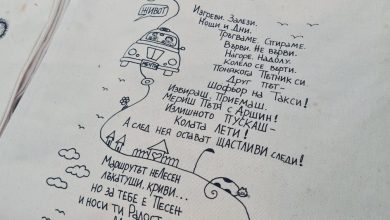 ЖИВОТ
Изгреви. Залези.
Нощи и Дни.
Тръгваме. Спираме.
Върви. Не върви.
Нагоре. Надолу.
Колело се върти.
Понякога Пътник си
Друг път –
Шофьор на Такси!
Избираш. Приемаш.
Мериш Пътя с Аршин!
Излишното Пускаш –
Колата Лети!
А след нея остават щастливи следи!
Маршрутът не Лесен
Лъкатуши, криви...
но за тебе е Песен
и носи ти Радост